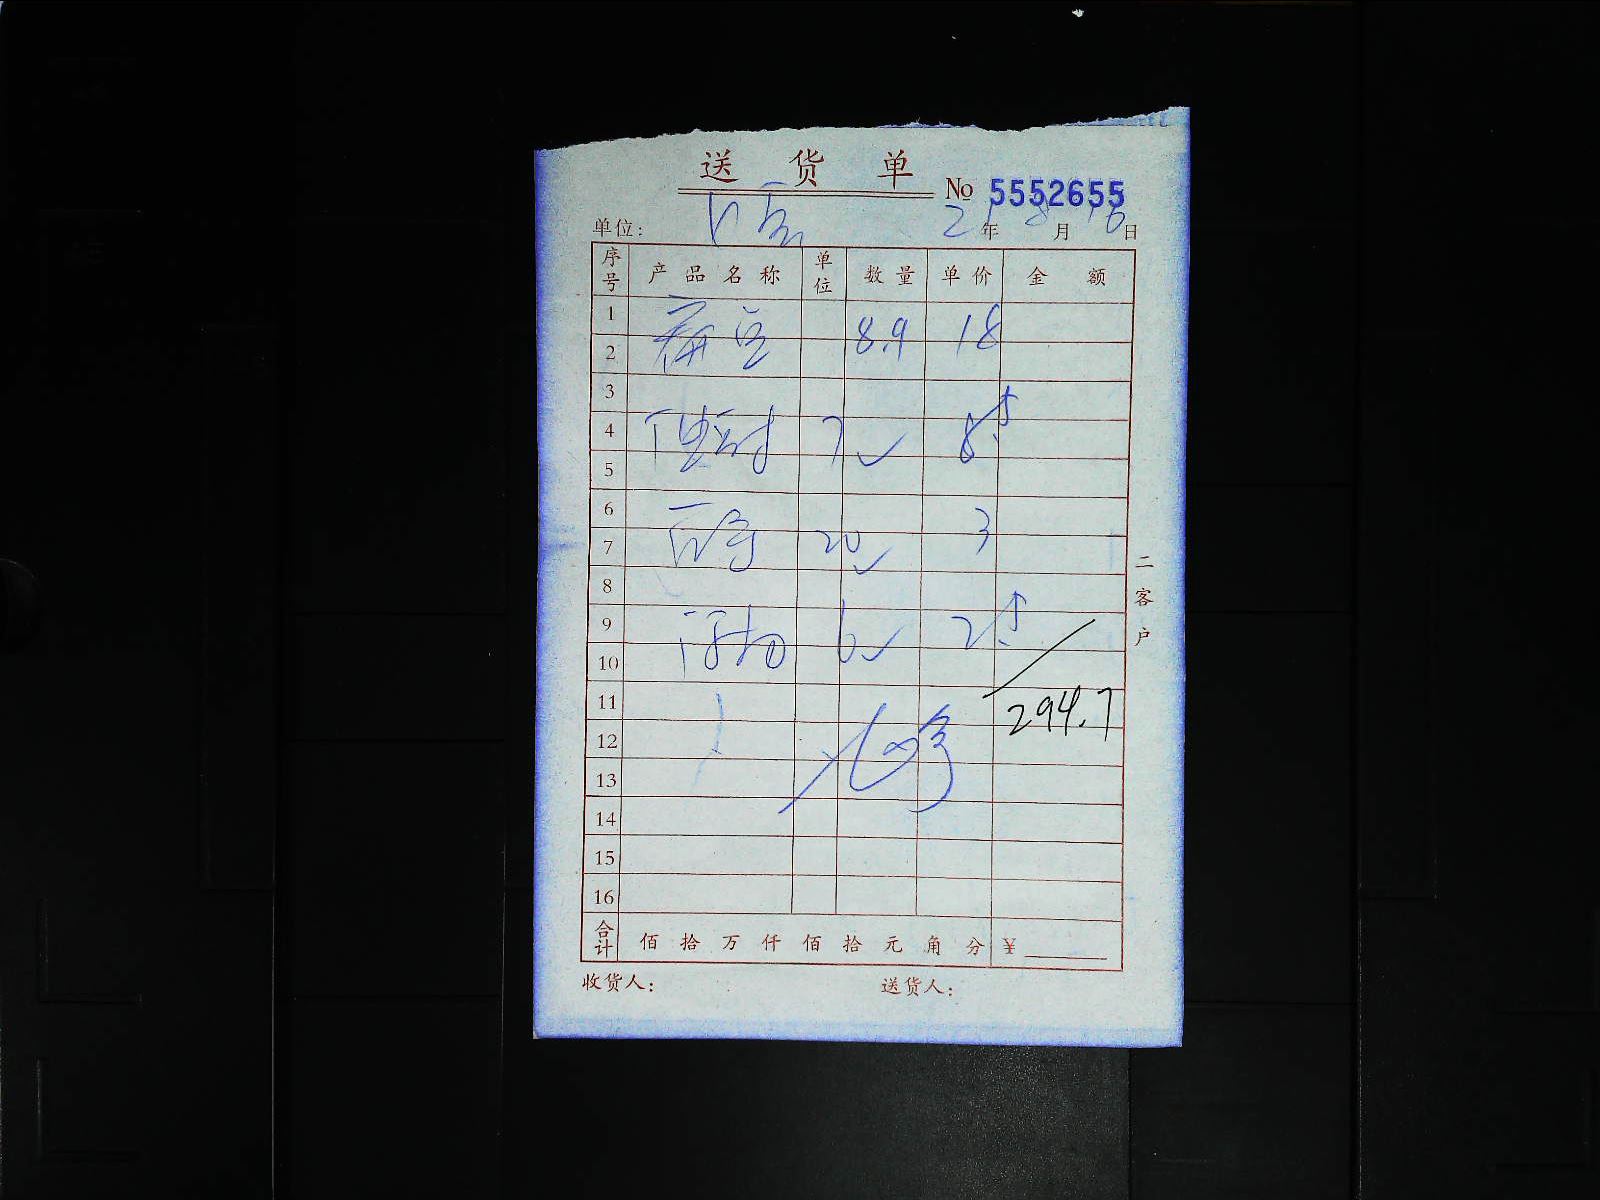 送 货 单
No 5552655
单位: 21 年 8 月 16 日
序号 产品名称 单位 数量 单价 金额
1
扁豆 8.9 18
2
3
4 7 8.5
5
6
3
7 20
8
9 6 2.5
10
11 294.7
12
13
14
15
16
合计 佰 拾 万 仟 佰 拾 元 角 分 ¥
收货人: 送货人:
二客户